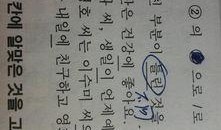 ② 의 으로/로
진 부분이 틀린 것을
은 건강이 좋아요.
호 씨, 생일이 언제예
는 이수미 씨의
내일에 친구하고 영
칸에 알맞은 것을 고